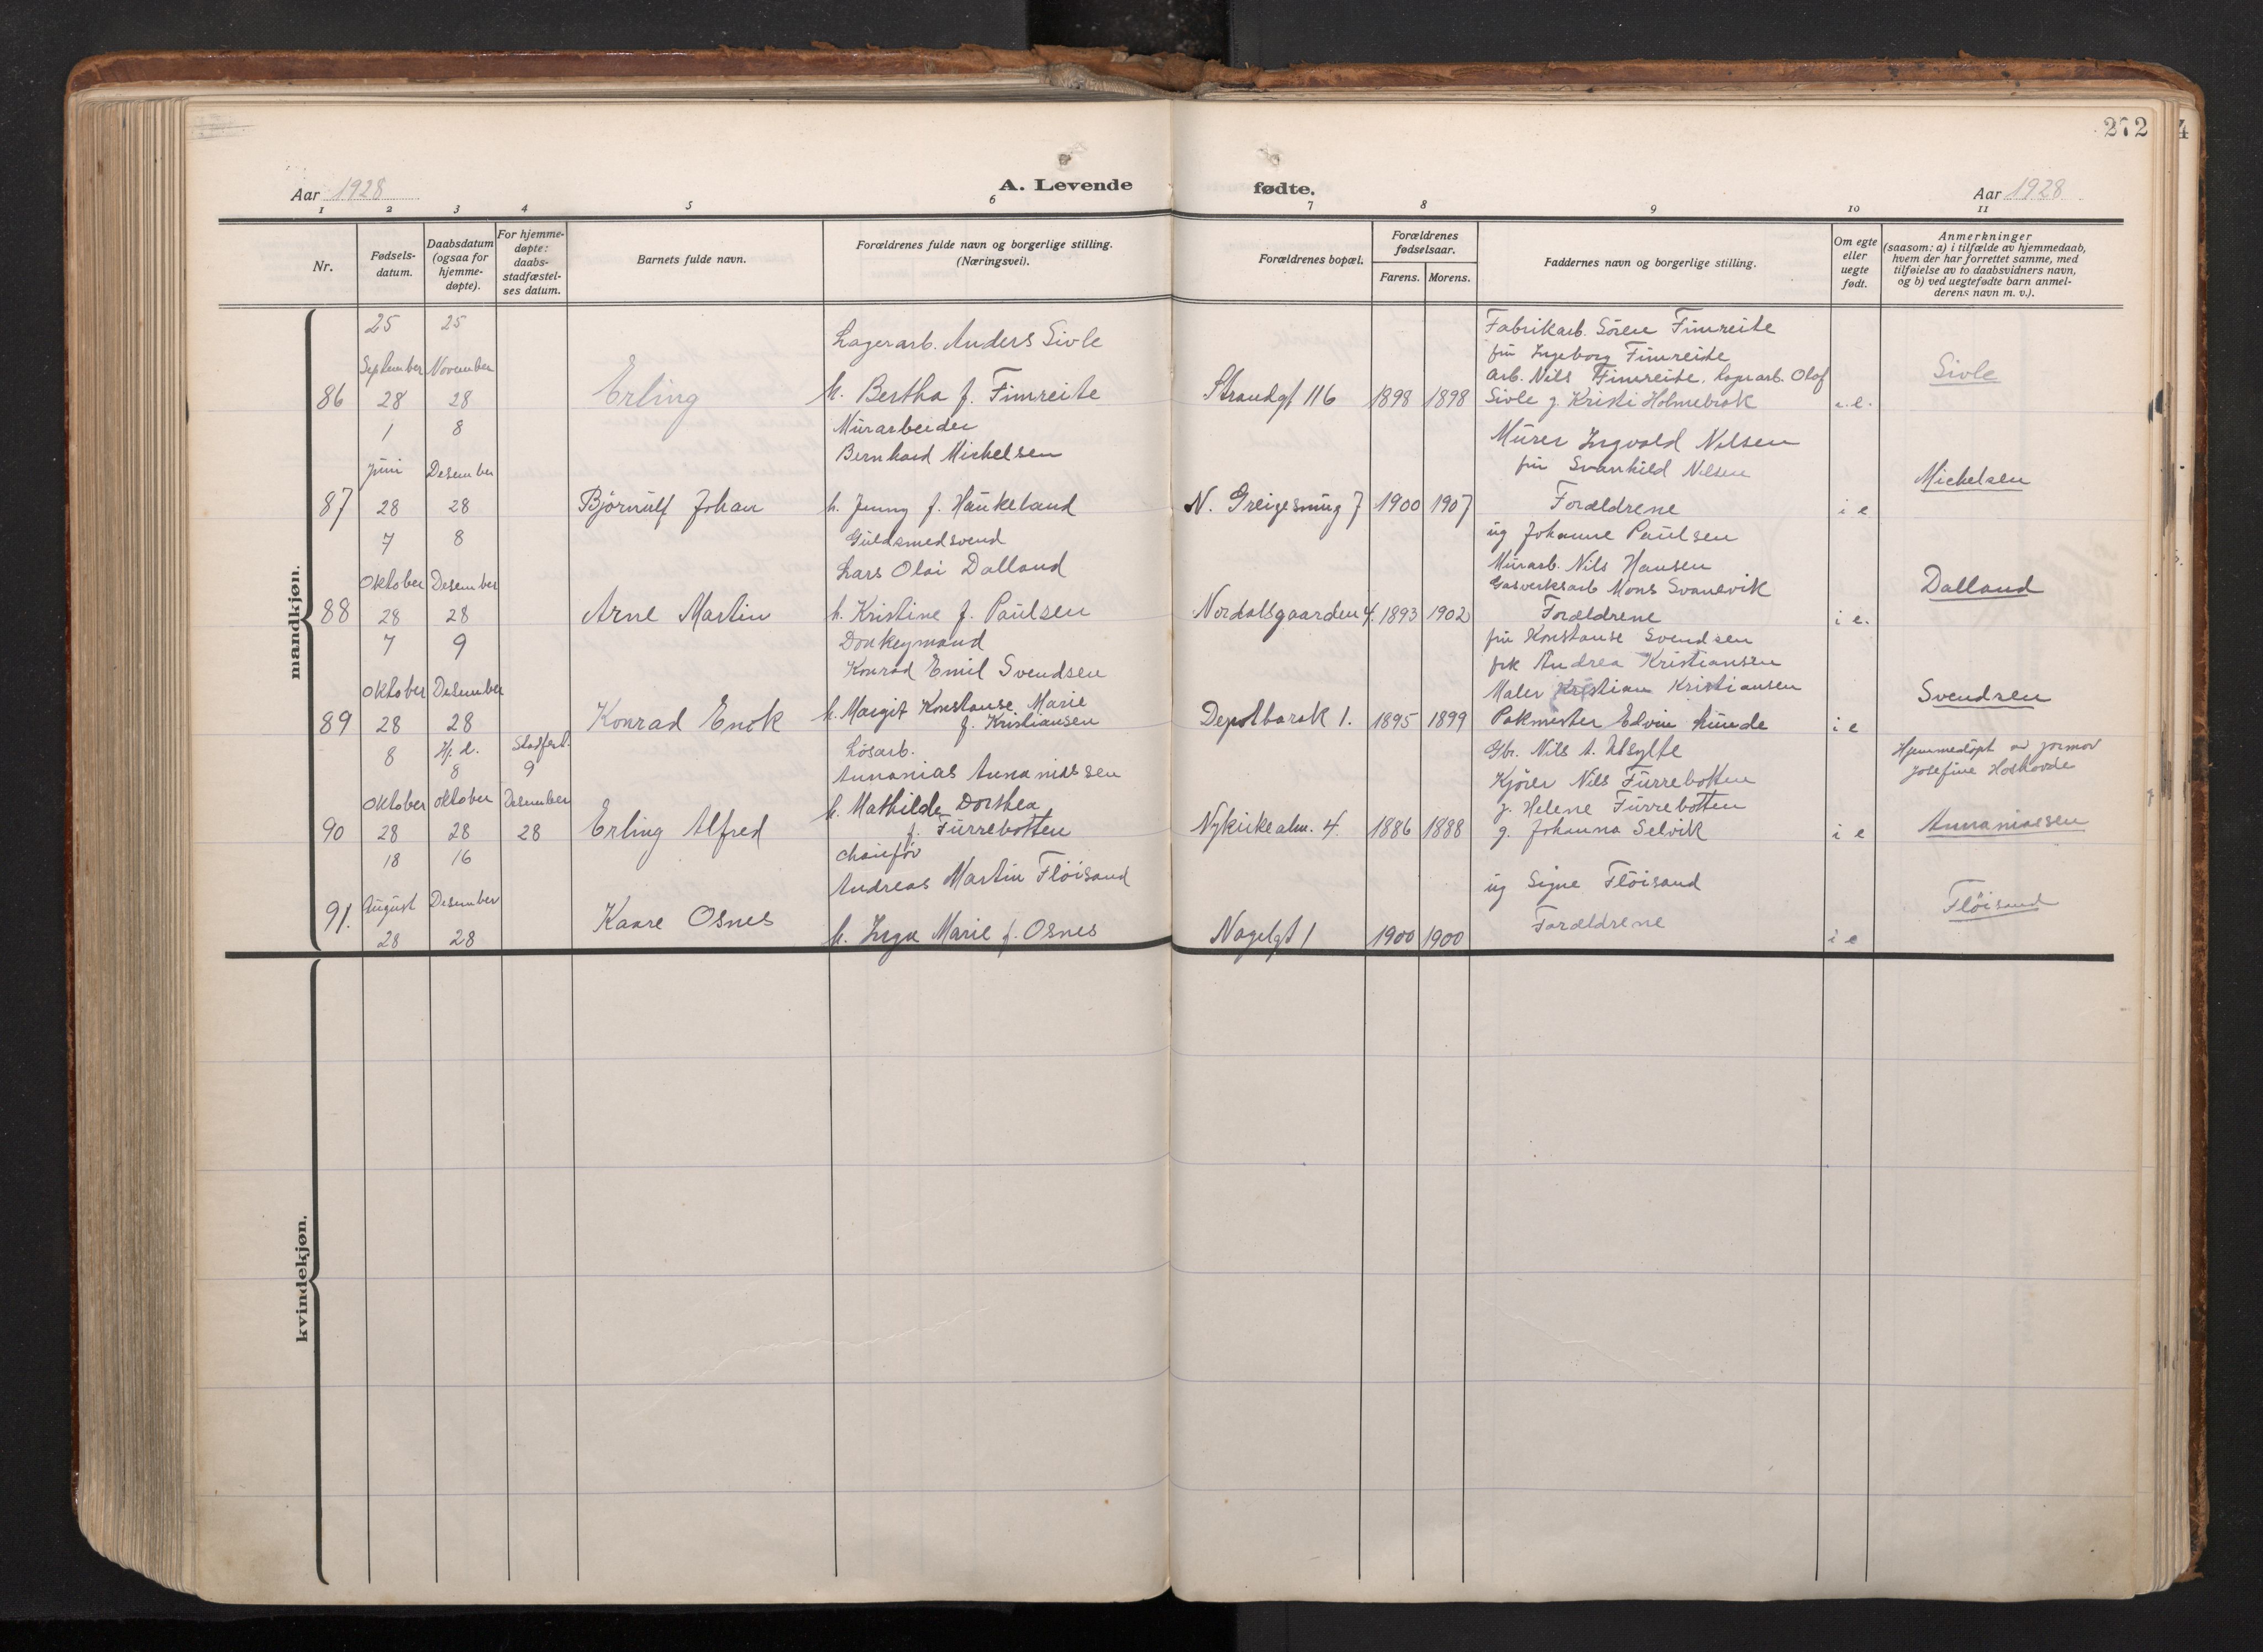 272
4
Aar 1928
A. Levende fødte.
Aar 1928
1 2 3 4 5 6 7 8 9 10 11
Nr.
Fødsels-
datum.
Daabsdatum
(ogsaa for
hjemme-
døpte).
For hjemme-
døpte:
daabs-
stadfæstel-
ses datum.
Barnets fulde navn.
Forældrenes fulde navn og borgerlige stilling.
(Næringsvei).
Forældrenes bopæl.
Forældrenes
fødselsaar.
Farens. Morens.
Faddernes navn og borgerlige stilling.
Om egte
eller
uegte
født.
Anmerkninger
(saasom: a) i tilfælde av hjemmedaab,
hvem der har forrettet samme, med
tilføielse av to daabsvidners navn,
og b) ved uegtefødte barn anmel-
derens navn m. v.).
mandkjøn.
86
25
September
28
25
November
28
Erling
Lagerarb. Anders Sivle
h. Bertha f. Fimreite
Strandgt 116
1898 1898
Fabrikarb. Sören Fimreite
fru Ingeborg Fimreite
arb. Nils Fimreite, Lagerarb. Olof
Sivle g. Kristi Holmebrok
i. e.
Sivle
87
1
Juni
28
8
Desember
28
Bjørnulf Johan
Murarbeider
Bernhard Michelsen
h. Jenny f. Haukeland
N. Greigesmug 7
1900 1907
Murer Ingvald Nilsen
fru Svanhild Nilsen
Forældrene
i e
Michelsen
88
7
Oktober
28
8
Desember
28
Arne Martin
Guldsmedsvend
Lars Olai Dalland
h. Kristine f. Paulsen
Nordalsgaarden 4.
1893 1902
ug Johanne Paulsen
Murarb. Nils Hansen
Gasverksarb Mons Svanevik
Forældrene
i e.
Dalland
89
7
Oktober
28
9
Desember
28
Konrad Enok
Donkeymand
Konrad Emil Svendsen
h. Margit Konstanse Marie
f. Kristiansen
Depotbarak 1.
1895 1899
fru Konstanse Svendsen
frk Andrea Kristiansen
Maler Kristian Kristiansen
Pakmester Edvin Lunde
i e
Svendsen
90
8
Oktober
28
Hj. d.
8
Oktober
28
Stadfest.
9
Desember
28
Erling Alfred
Løsarb.
Annanias Annaniassen
h. Mathilde Dorthea
f. Furrebotten
Nykirkealm. 4.
1886 1888
Gbr. Nils A.
Kjører Nils Furrebotten
g. Helene Furrebotten
g. Johanna Selvik
i e
Hjemmedöpt av jormor
Josefine
Annaniassen
91.
18
August
28
16
Desember
28
Kaare Osnes
Chauför
Andreas Martin Flöisand
h. Inga Marie f. Osnes
Nagelgt 1
1900 1900
ug Signe Flöisand
Forældrene
i e
Flöisand
kvindekjøn.